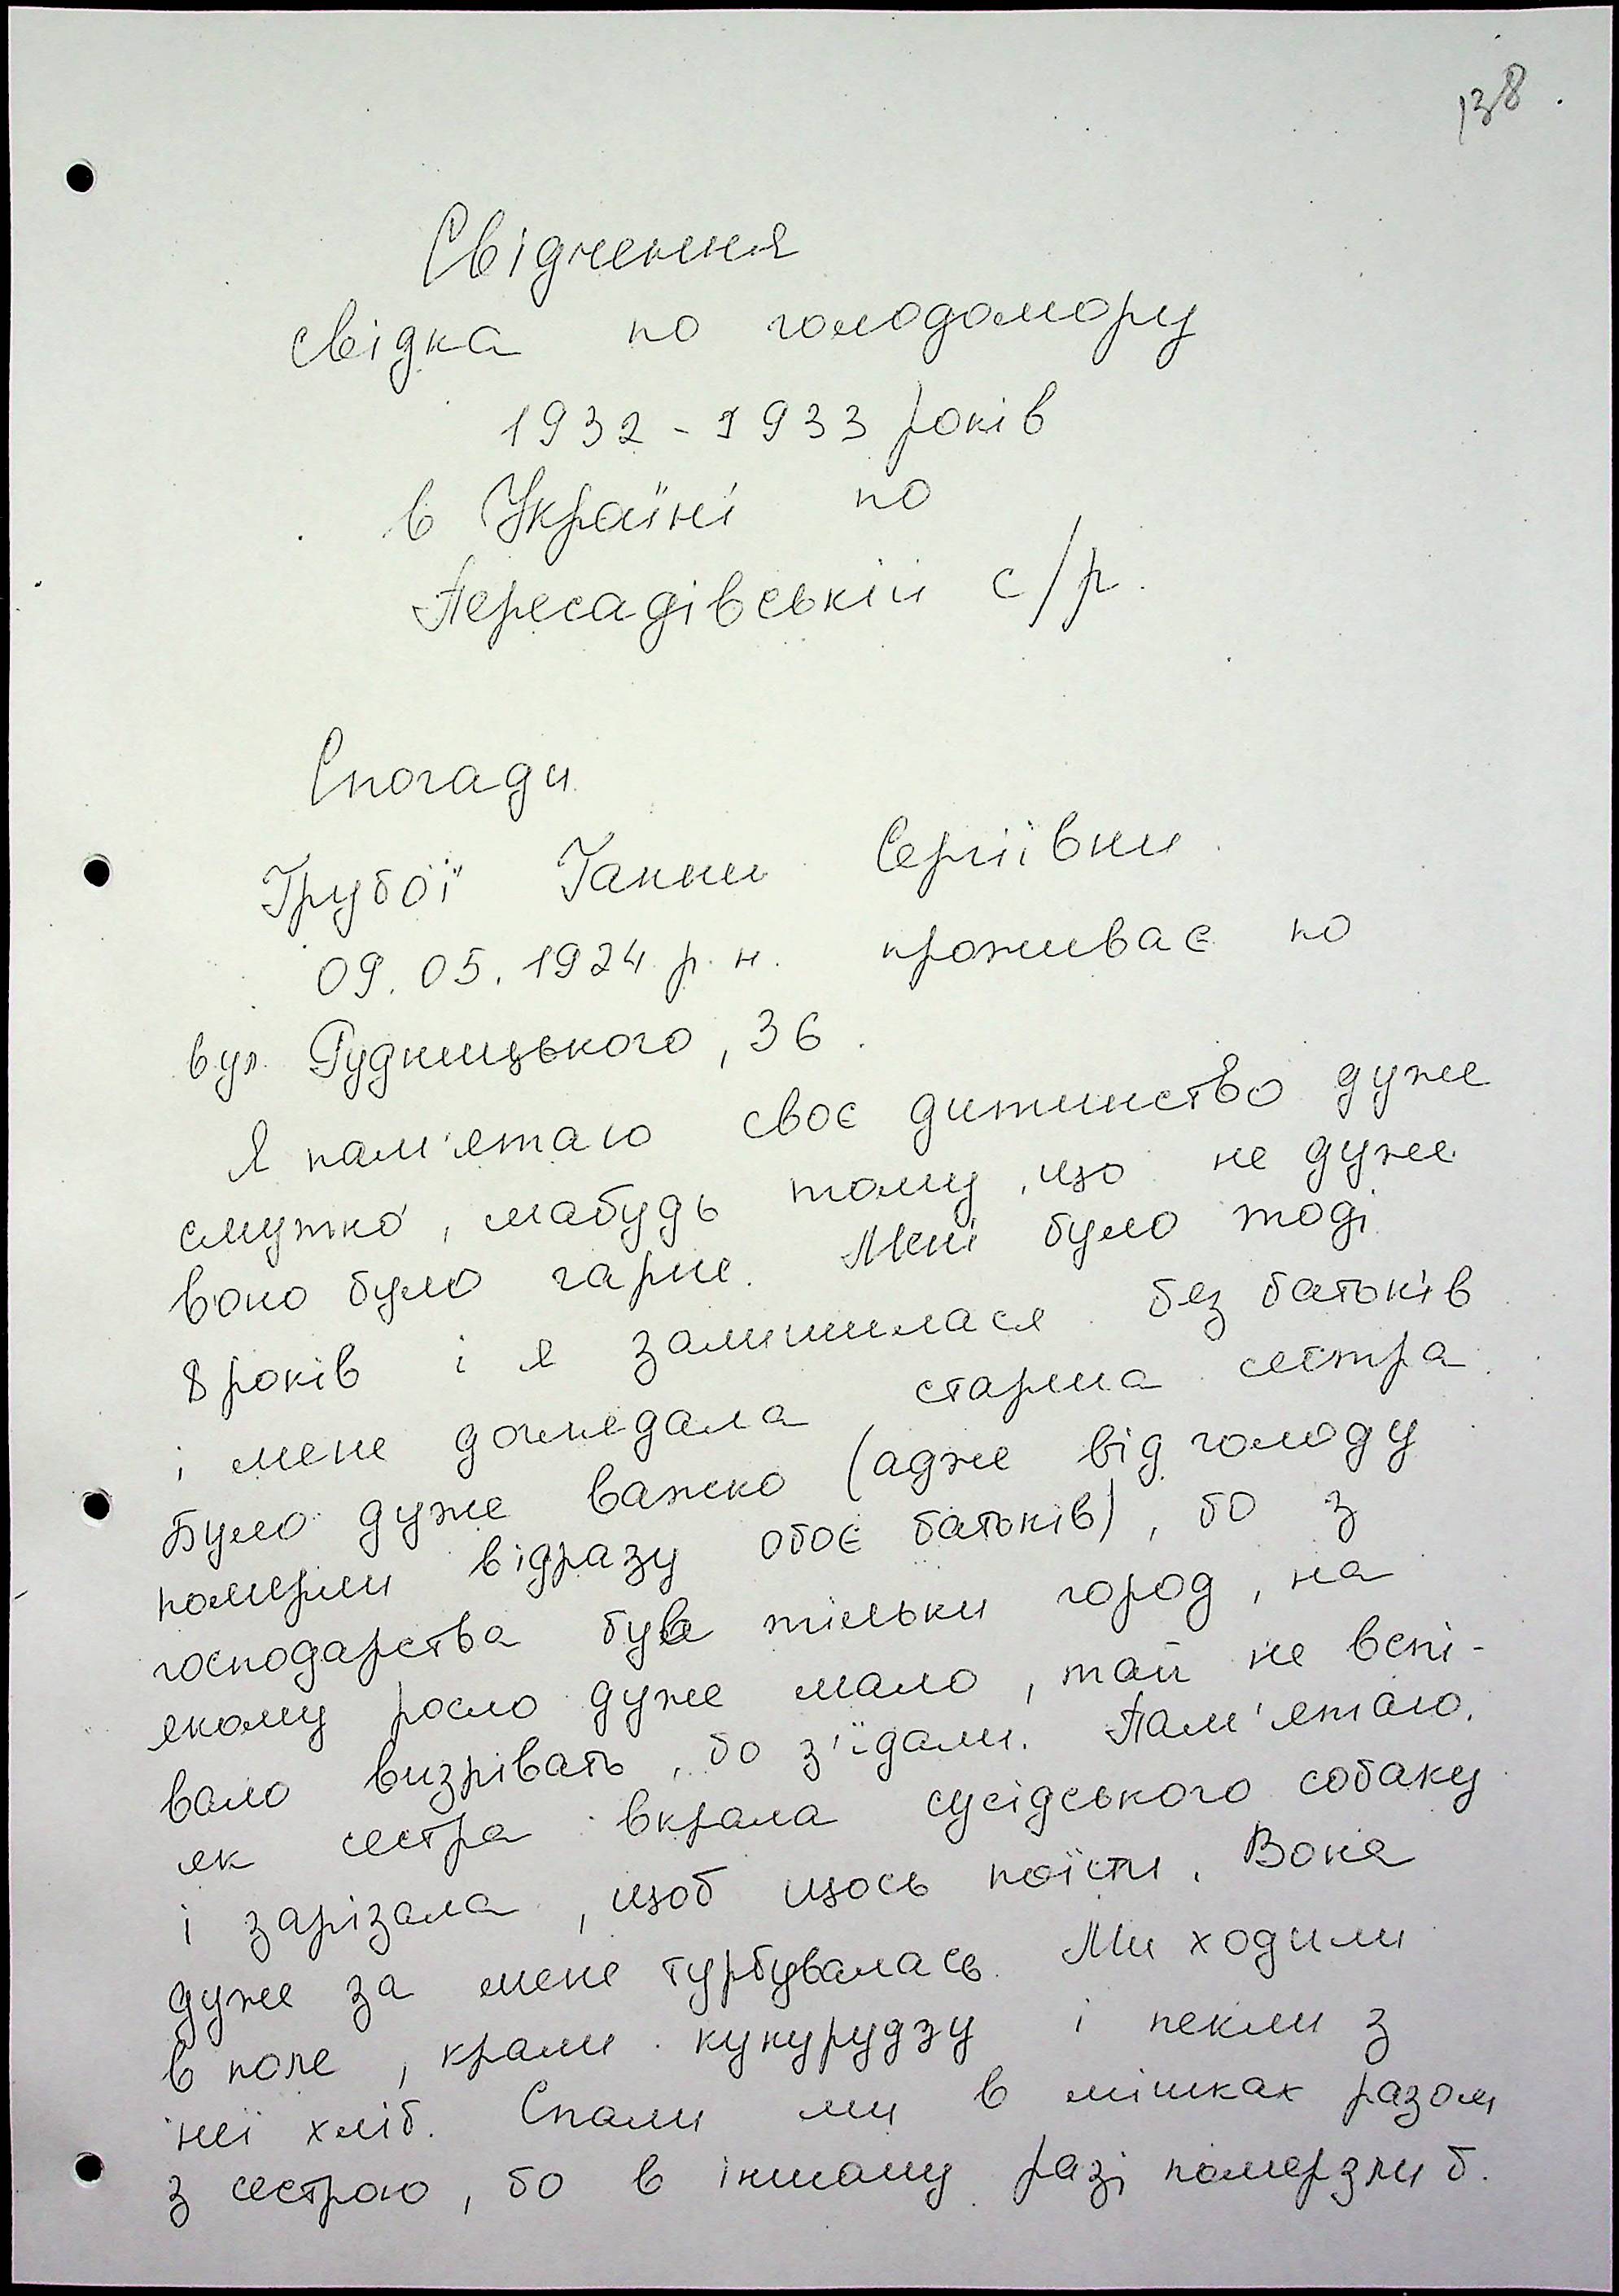 138.
Свідчення
свідка по голодомору
1932-1933 років
в Україні по
Пересадівській с/р.
Спогади
Грубої Ганни Сергіївни
09.05.1924 р.н. проживає по
вул. Рудницького, 36.
Я пам'ятаю своє дитинство дуже
смутно, мабудь тому, що не дуже
воно було гарне. Мені було тоді
8 років і я залишилася без батьків
і мене доглядала старша сестра.
Було дуже важко (адже від голоду
померли відразу обоє батьків), бо з
господарства був тільки город, на
якому росло дуже мало, тай не вспі-
вало визрівать, бо з'їдали. Пам'ятаю,
як сестра вкрала сусідського собаку
і зарізала, щоб щось поїсти. Вона
дуже за мене турбувалась. Ми ходили
в поле, крали кукурудзу і пекли з
неї хліб. Спали ми в мішках разом
з сестрою, бо в іншому разі померзли б.